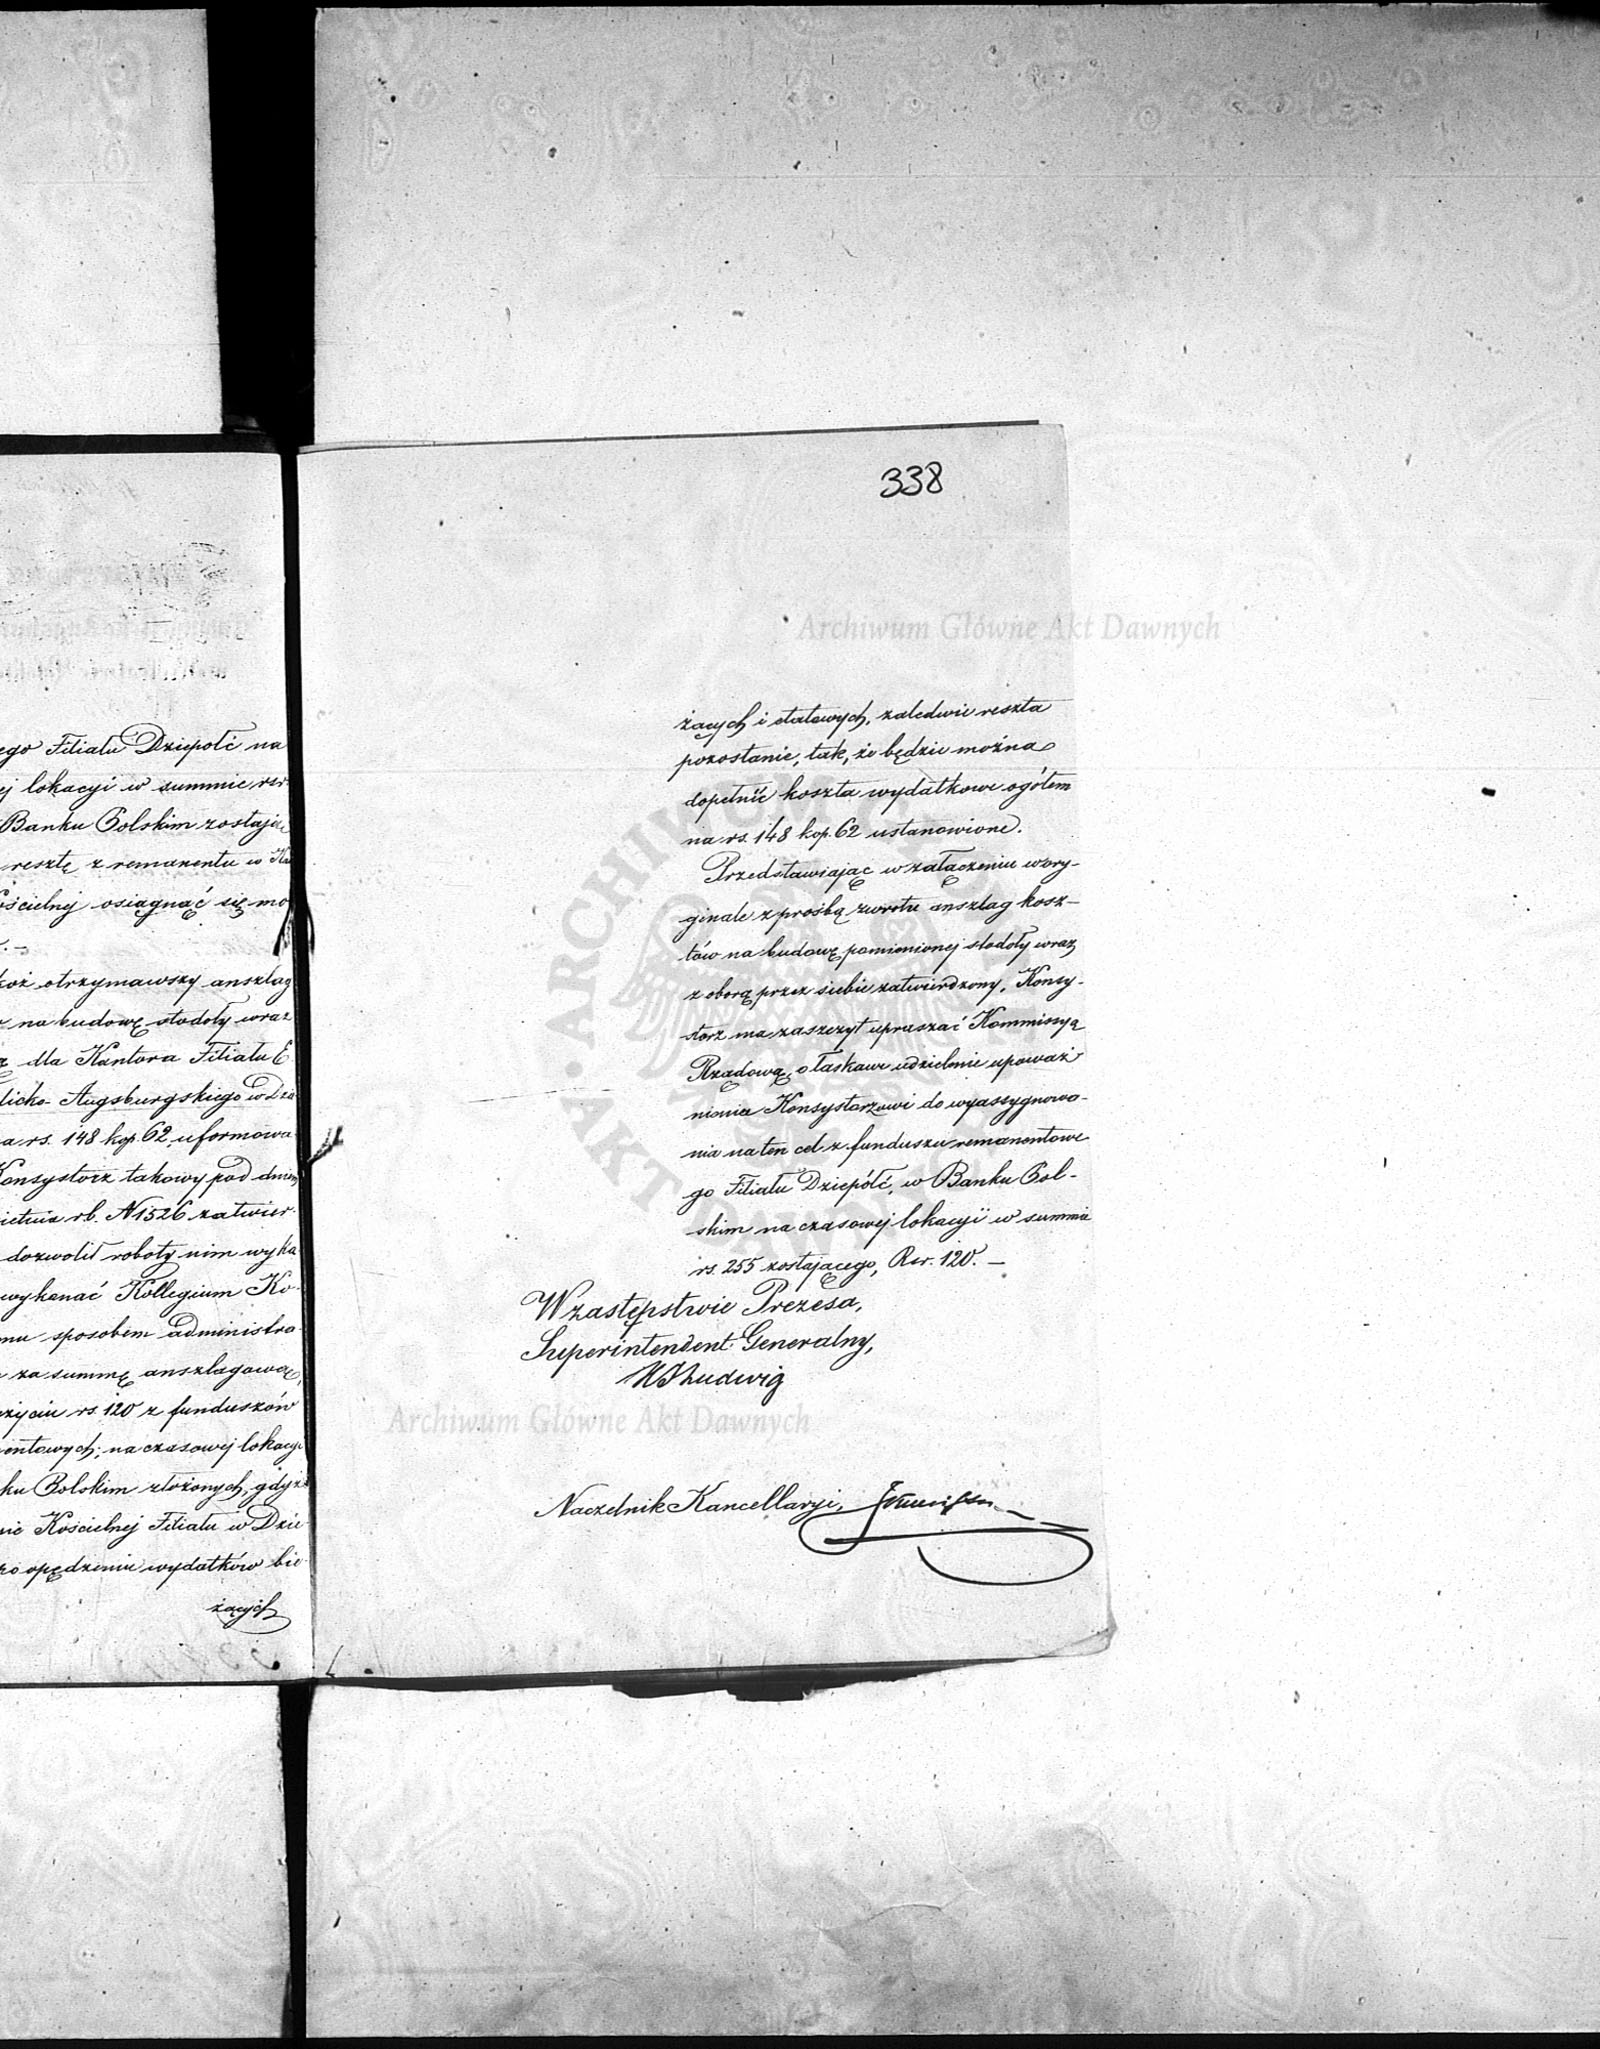 ego Filiału Dziepolć na
ej lokacyi w summie rsr.
Banku Polskim zostające
resztę z remanentu w Ka
ościelnej osiągnąć się mo
koż otrzymawszy anszlag
na budowę stodoły wraz
dla Kantora Filiału E
licko-Augsburgskiego w Dzie
a rs. 148 kop. 62, uformowa
Konsystorz takowy pod dniem
ietnia rb. N 1526 zatwier
dozwolił roboty nim wyka
wykonać Kollegium Ko-
mu sposobem administra
za summę anszlagową,
życiu rs. 120 z funduszów
entowych, na czasowej lokacyi
ku Polskim złożonych, gdyż z
nie Kościelnej Filiału w Dzie
po opędzeniu wydatków bie
żących
338
żących i etatowych, zaledwie reszta
pozostanie, tak, że będzie można
dopełnić koszta wydatkowe ogółem
na rs. 148 kop. 62 ustanowione.
Przedstawiając w załączeniu wory-
ginale z prośbą zwrotu anszlag kosz-
tów na budowę pomienionej stodoły wraz
z oborą przez siebie zatwierdzony, Konsy-
storz ma zaszczyt upraszać Kommissyą
Rządową, o łaskawe udzielenie upoważ
nienia Konsystorzowi do wyassygnowa-
nia na ten cel z funduszu remanentowe
go Filiału Dziepółć, w Banku Pol-
skim na czasowej lokacyi w summie
rs. 255 zostającego, Rsr. 120. —
W zastępstwie Prezesa,
Superintendent Generalny,
Ludwig
Naczelnik Kancellaryi,
Archiwum Główne Akt Dawnych
Archiwum Główne Akt Dawnych